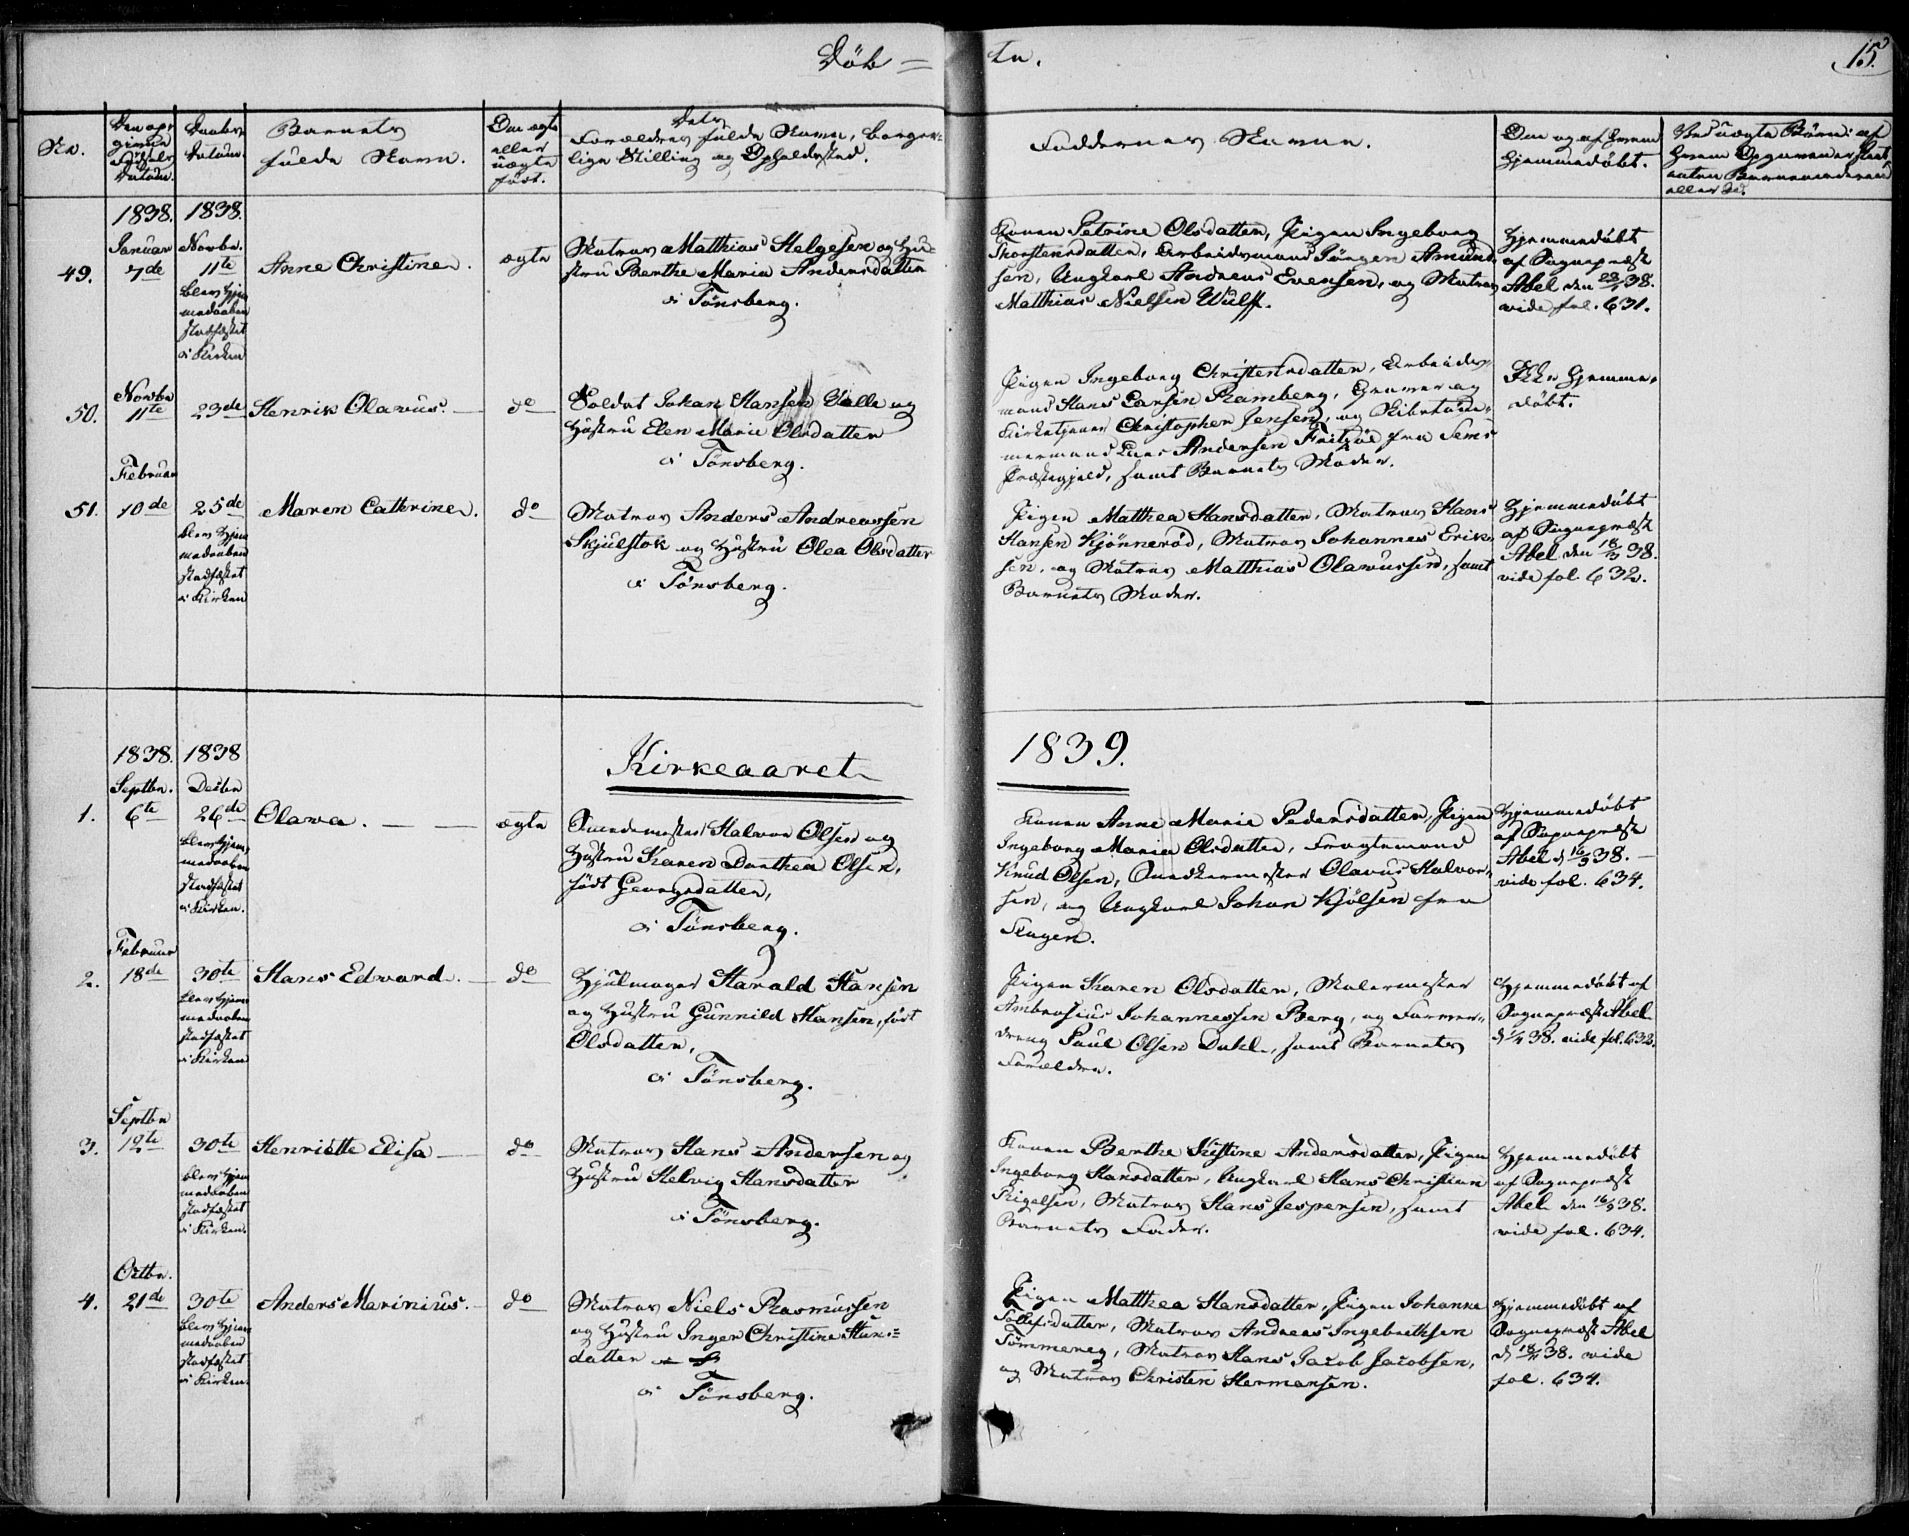 Döb=
te.
15.
No.
Den op-
givne
Födsels
Datum.
Daabs-
Datum.
Barnets
fulde Navn.
Om ægte
eller
uægte
födt.
Dets
Forældres fulde Navn, borger-
lige Stilling og Opholdssted.
Faddernes Navne.
Om og af hvem
hjemmedöbt.
Ved uægte Börn: af
eller Do.
1838.
1838.
Januar
Novbr.
49.
7de
11te
blev hjem-
medaaben
stadfæstet
i Kirken
Anne Christine.
ægte
Matros Matthias Helgesen og Hu-
stru Berthe Maria Andersdatter
i Tönsberg.
Konen Petrine Olsdatter, Pigen Ingeborg
Thorstensdatter, Arbeidsmand Jörgen Amund-
sen, Ungkarl Andreas Evensen, og Matros
Matthias Nielsen Wulff.
Hjemmedöbt
af Sognepræst
Abel den 38.
vide fol. 631.
50.
Novbr
11te
23de
Henrik Olavus. —
do
Soldat Johan Hansen Valle og
Hustru Elen Marie Olsdatter
i Tönsberg.
Pigen Ingeborg Christensdatter, Arbeids-
mand Hans Larsen Ramberg, Graver og
Kirketjener Christopher Jensen, og
Lars Andersen Fritzöe fra Sems
Præstegjeld, samt Barnets Moder.
Ikke hjemme-
döbt.
Februar
51.
10de
25de
blev hjem-
medaaben
stadfæstet
i Kirken
Maren Cathrine.
do
Matros Anders Andreassen
Skjulstok og Hustru Olea Olsdatter
i Tönsberg.
Pigen Matthea Hansdatter, Matros Hans
Hansen Kjönneröd, Matros Johannes Erik-
sen, og Matros Matthias Olavussen, samt
Barnets Moder.
Hjemmedöbt
af Sognepræst
Abel den 18/3 38.
vide fol. 632.
Kirkeaaret
1839.
1838.
1838
Septbr.
Decbr
1.
6te
26de
blev hjem-
medaaben
stadfæstet
i Kirken.
Olava. — —
ægte
Halvor Olsen og
Hustru Karen Dorthea Olsen,
födt Georgsdatter,
i Tönsberg.
Konen Anne Marie Pedersdatter, Pigen
Ingeborg Maria Olsdatter, Fragtemand
Knud Olsen, Snedkermester Olavus Halvor-
sen, og Ungkarl Johan Kjölsen fra
Skagen.
Hjemmedöbt
af Sognepræst
Abel d 16/9 38. —
vide fol. 634.
Februar
2.
18de
30te
blev hjem-
medaaben
stadfæstet
i Kirken
Hans Edvard. —
do
Hjulmager Harald Hansen
og Hustru Gunnild Hansen, födt
Olsdatter,
i Tönsberg.
Pigen Karen Olsdatter, Malermester
Ambrosius Johannessen Berg, og Farver-
dreng Paul Olsen Dahl, samt Barnets
Forældre.
Hjemmedöbt af
Sognepræst Abel
38. vide fol. 632.
Septbr
3.
12te
30te
blev hjem-
medaaben
stadfæstet
i Kirken.
Henriette Elisa —
do
Matros Hans Andersen og
Hustru Helvig Hansdatter
i Tönsberg.
Konen Berthe Kistine Andersdatter, Pigen
Ingeborg Hansdatter, Ungkarl Hans Christian
Rigelsen, Matros Hans Jespersen, samt
Barnets Fader.
Hjemmedöbt
af Sognepræst
Abel den 16/9 38.
vide fol. 634.
Octbr.
4.
21de
30te
blev hjem-
medaaben
stadfæstet
i Kirken.
Anders Marinius. —
do
Matros Niels Rasmussen
og Hustru Inger Christine Hans=
datter
i Tönsberg.
Pigen Matthea Hansdatter, Pigen Johanne
Tollefsdatter, Matros Andreas Ingebrethsen
Tömmereg, Matros Hans Jacob Jacobsen,
og Matros Christen Hermansen.
Hjemmedöbt af
Sognepræst Abel
d 18/11 38. vide
fol. 634.